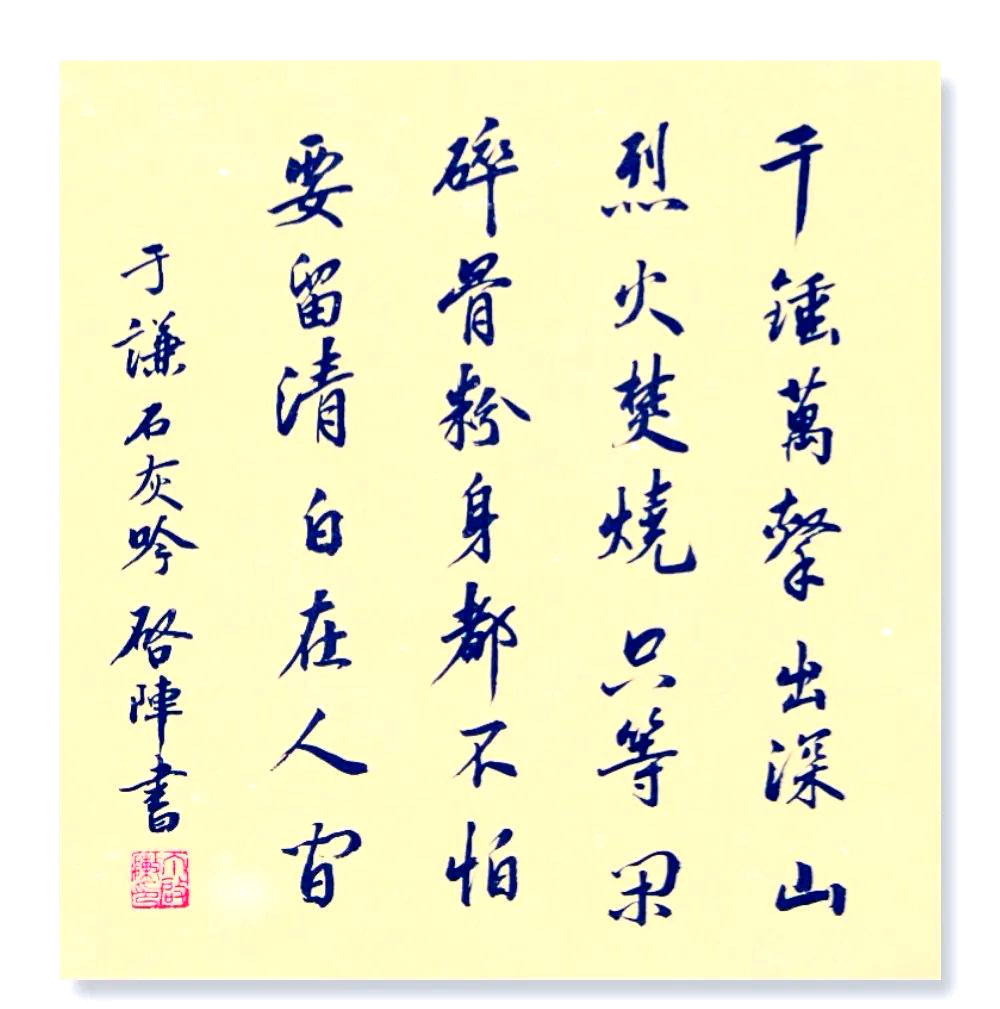 千錘萬擊出深山
烈火焚燒只等閑
碎骨粉身都不怕
要留清白在人間
于謙石灰吟 啓陣書
丁啟陣印